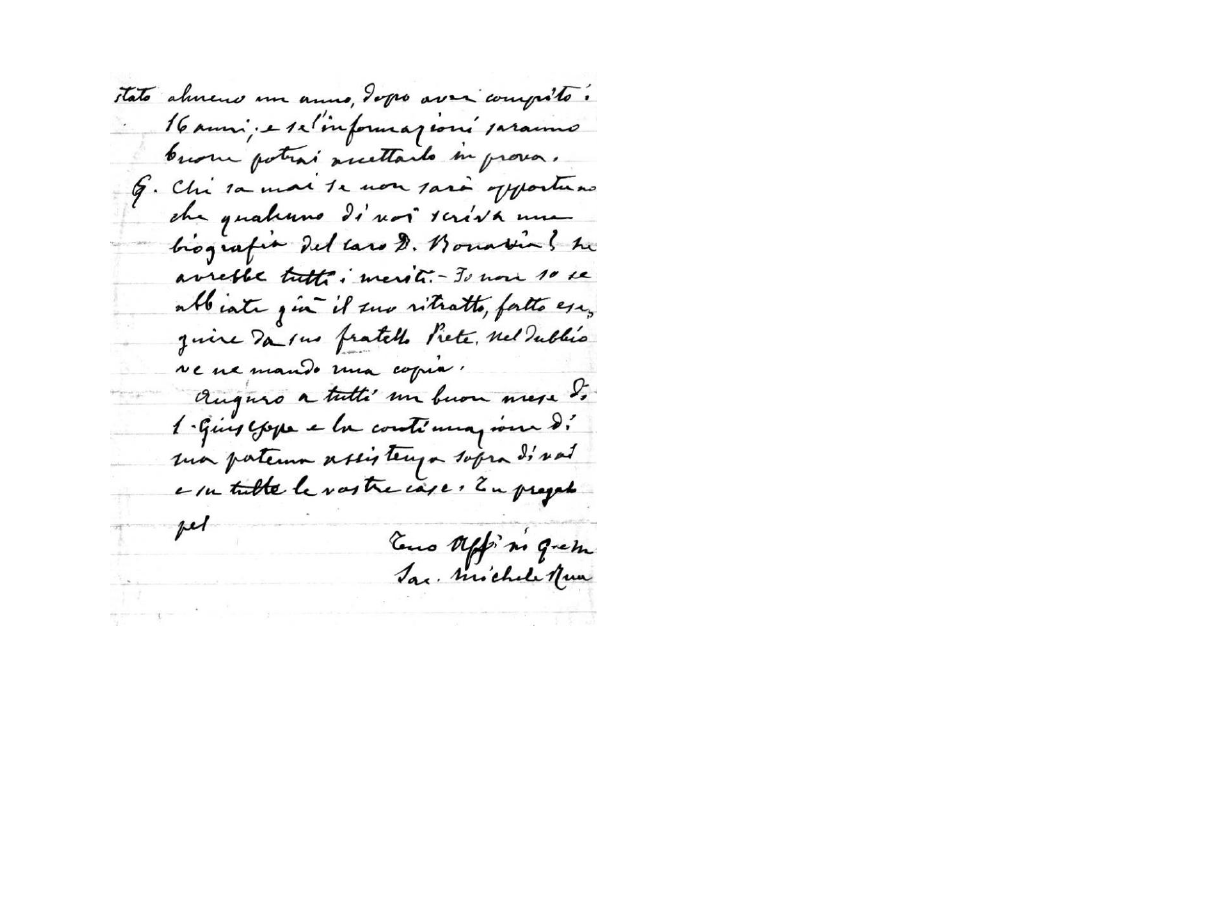 stato almeno un anno, dopo aver compito i
16 anni; e se l'informazioni saranno
buone potrai accettarlo in prova.
G. Chi sa mai se non sarà opportuno
che qualcuno di voi scriva una
biografia del caro D. Bonavia? Ne
avrebbe tutti i meriti. - Io non so se
abbiate già il suo ritratto, fatto ese,
guire da suo fratello Prete. Nel dubbio
ve ne mando una copia.
Auguro a tutti un buon mese di
S. Giuseppe e la continuazione di
sua paterna assistenza sopra di voi
e su tutte le vostre case. Tu prega
pel
Tuo Aff.mo in G. e M.
Sac. Michele Rua